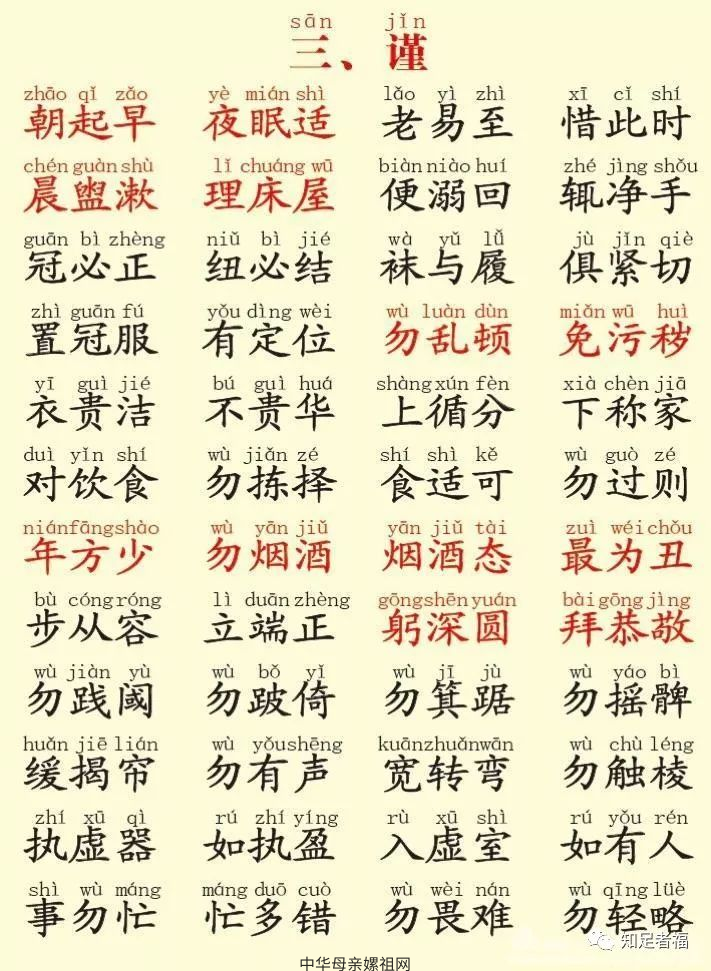 sān jǐn
三、谨
zhāo qǐ zǎo yè mián shì lǎo yì zhì xī cǐ shí
朝起早 夜眠适 老易至 惜此时
chén guàn shù lǐ chuáng wū biàn niào huí zhé jìng shǒu
晨盥漱 理床屋 便溺回 辄净手
guān bì zhèng niǔ bì jié wà yǔ lǚ jù jǐn qiè
冠必正 纽必结 袜与履 俱紧切
zhì guān fú yǒu dìng wèi wù luàn dùn miǎn wū huì
置冠服 有定位 勿乱顿 免污秽
yī guì jié bú guì huá shàng xún fèn xià chèn jiā
衣贵洁 不贵华 上循分 下称家
duì yǐn shí wù jiǎn zé shí shì kě wù guò zé
对饮食 勿拣择 食适可 勿过则
nián fāng shào wù yān jiǔ yān jiǔ tài zuì wéi chǒu
年方少 勿烟酒 烟酒态 最为丑
bù cóng róng lì duān zhèng gōng shēn yuán bài gōng jìng
步从容 立端正 躬深圆 拜恭敬
wù jiàn yù wù bǒ yǐ wù jī jù wù yáo bì
勿践阈 勿跛倚 勿箕踞 勿摇髀
huǎn jiē lián wù yǒu shēng kuān zhuǎn wān wù chù léng
缓揭帘 勿有声 宽转弯 勿触棱
zhí xū qì rú zhí yíng rù xū shì rú yǒu rén
执虚器 如执盈 入虚室 如有人
shì wù máng máng duō cuò wù wèi nán wù qīng lüè
事勿忙 忙多错 勿畏难 勿轻略
知足者福
中华母亲嫘祖网